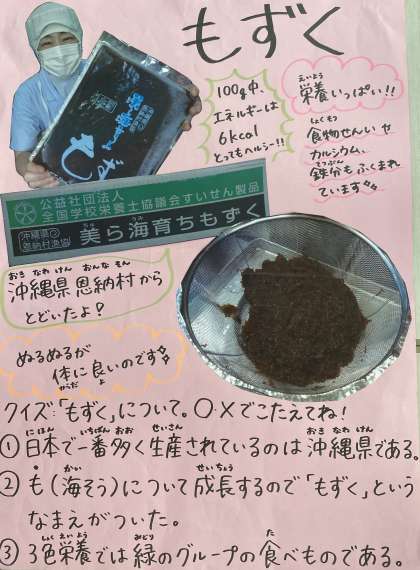 もずく
恩納村
もず
100g中、
エネルギーは
6kcal
とってもヘルシー!!
えいよう
栄養いっぱい!!
しょくもつ
食物せんいや
カルシウム、
てつぶん
鉄分もふくまれ
ています
公益社団法人
全国学校栄養士協議会すいせん製品
沖縄県 恩納村漁協
美ら海育ちもずく
おきなわけん おんなそん
沖縄県恩納村から
とどいたよ♪
ぬるぬるが
体に良いのです
からだ よ
クイズ:「もずく」について。〇×でこたえてね!
にほん いちばん おお せいさん おきなわけん
①日本で一番多く生産されているのは沖縄県である。
かい せいちょう
②も(海そう)について成長するので「もずく」という
なまえがついた。
しょくえいよう みどり た
③3色栄養では緑のグループの食べものである。